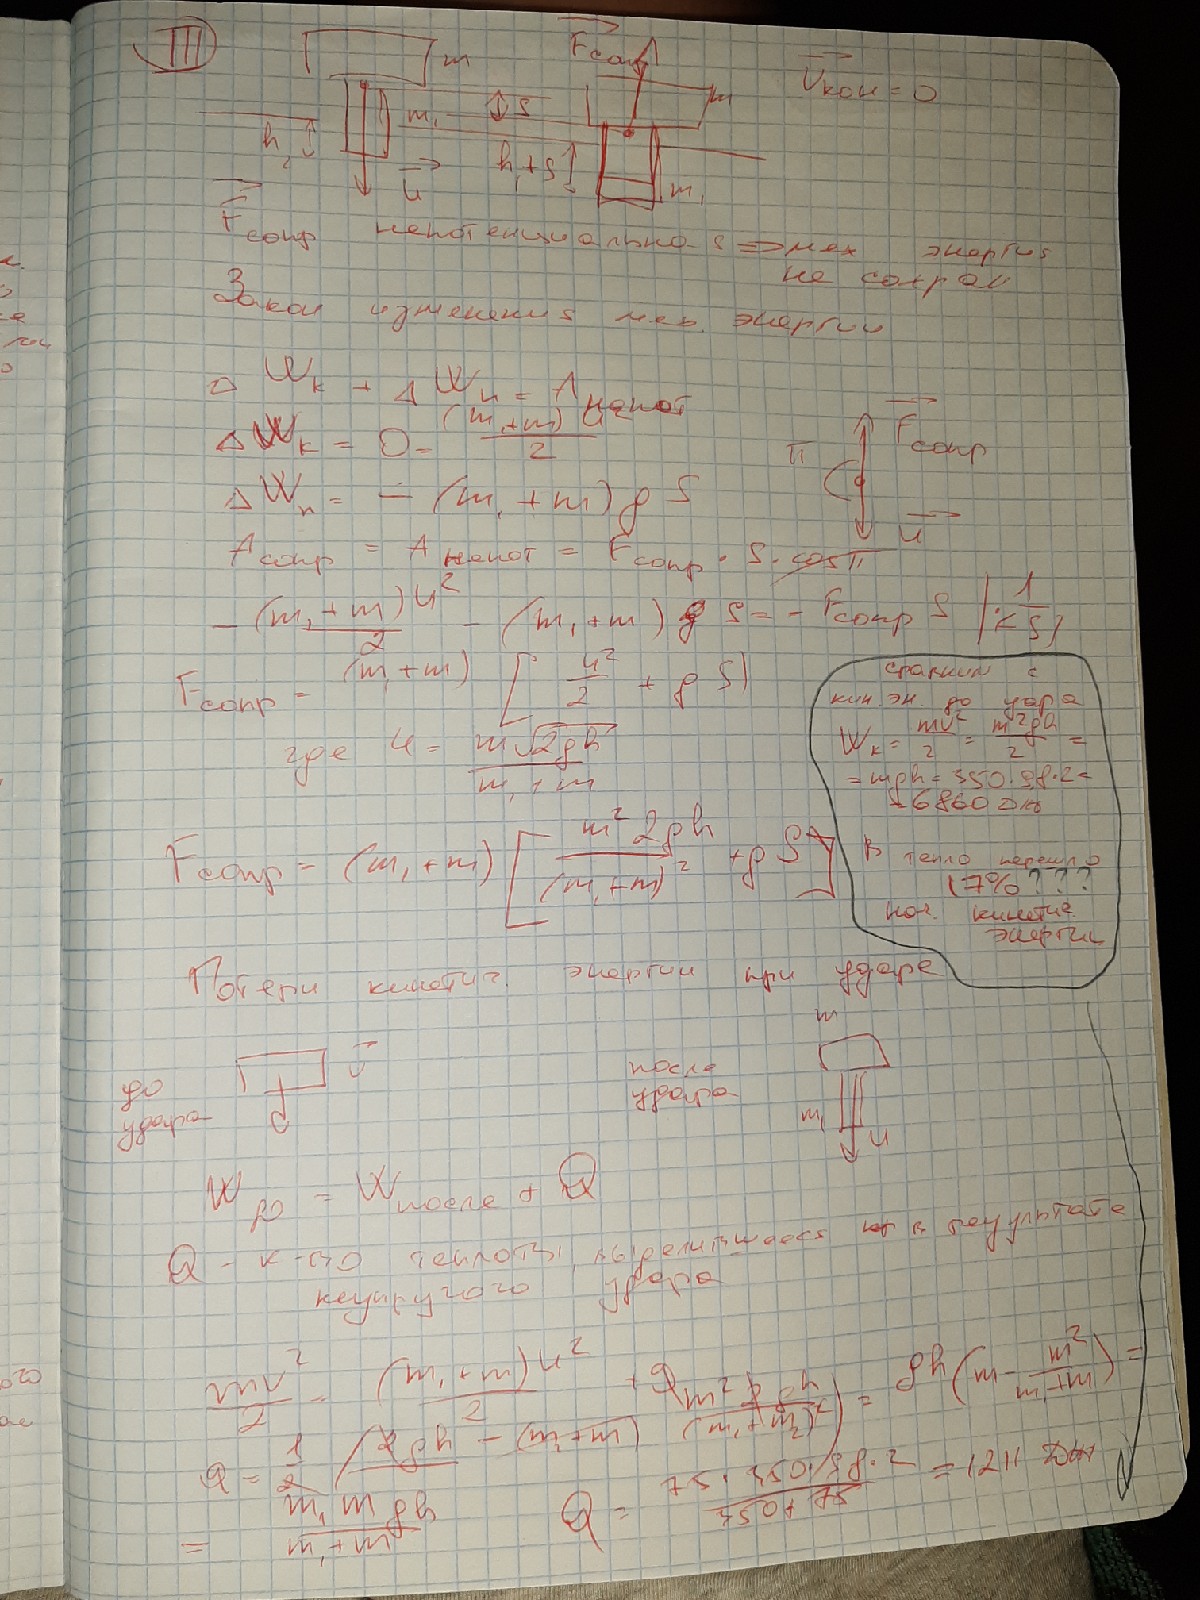 III
m
Fсопр
m
Vкон = 0
m₁
S
h₁
h₁+S
u
m₁
Fсопр непотенциальная => мех энергия
не сохран
Закон изменения мех. энергии
Δ Wк + Δ Wп = Aнепот
Δ Wк = 0 - (m₁+m) u² / 2
Fсопр
π
Δ Wп = - (m₁ + m) g S
u
Aсопр = Aнепот = Fсопр · S · cos π
- (m₁ + m) u² / 2 - (m₁ + m) g S = - Fсопр S
Fсопр = (m₁ + m) [ u² / 2 + g S ]
где u = m√2gh / m₁ + m
Fсопр = (m₁ + m) [ m² 2gh / (m₁ + m)² + g S ]
сравним с
кин. эн. до удара
Wк = mv² / 2 = m 2gh / 2 =
= mgh = 350 · 9,8 · 2 =
= 6860 Дж
В тепло перешло
17% ???
нач. кинетич.
энергии
Потери кинетич. энергии при ударе
до
удара
v
после
удара
m
m₁
u
Wдо = Wпосле + Q
Q - к-во теплоты, выделившееся в результате
неупругого удара
mv² / 2 = (m₁ + m) u² / 2 + Q
Q = 1 / 2 (m 2gh - (m₁+m) m² 2gh / (m₁+m)²) = gh (m - m² / m₁+m) =
= m₁ m gh / m₁ + m
Q = = 1211 Дж